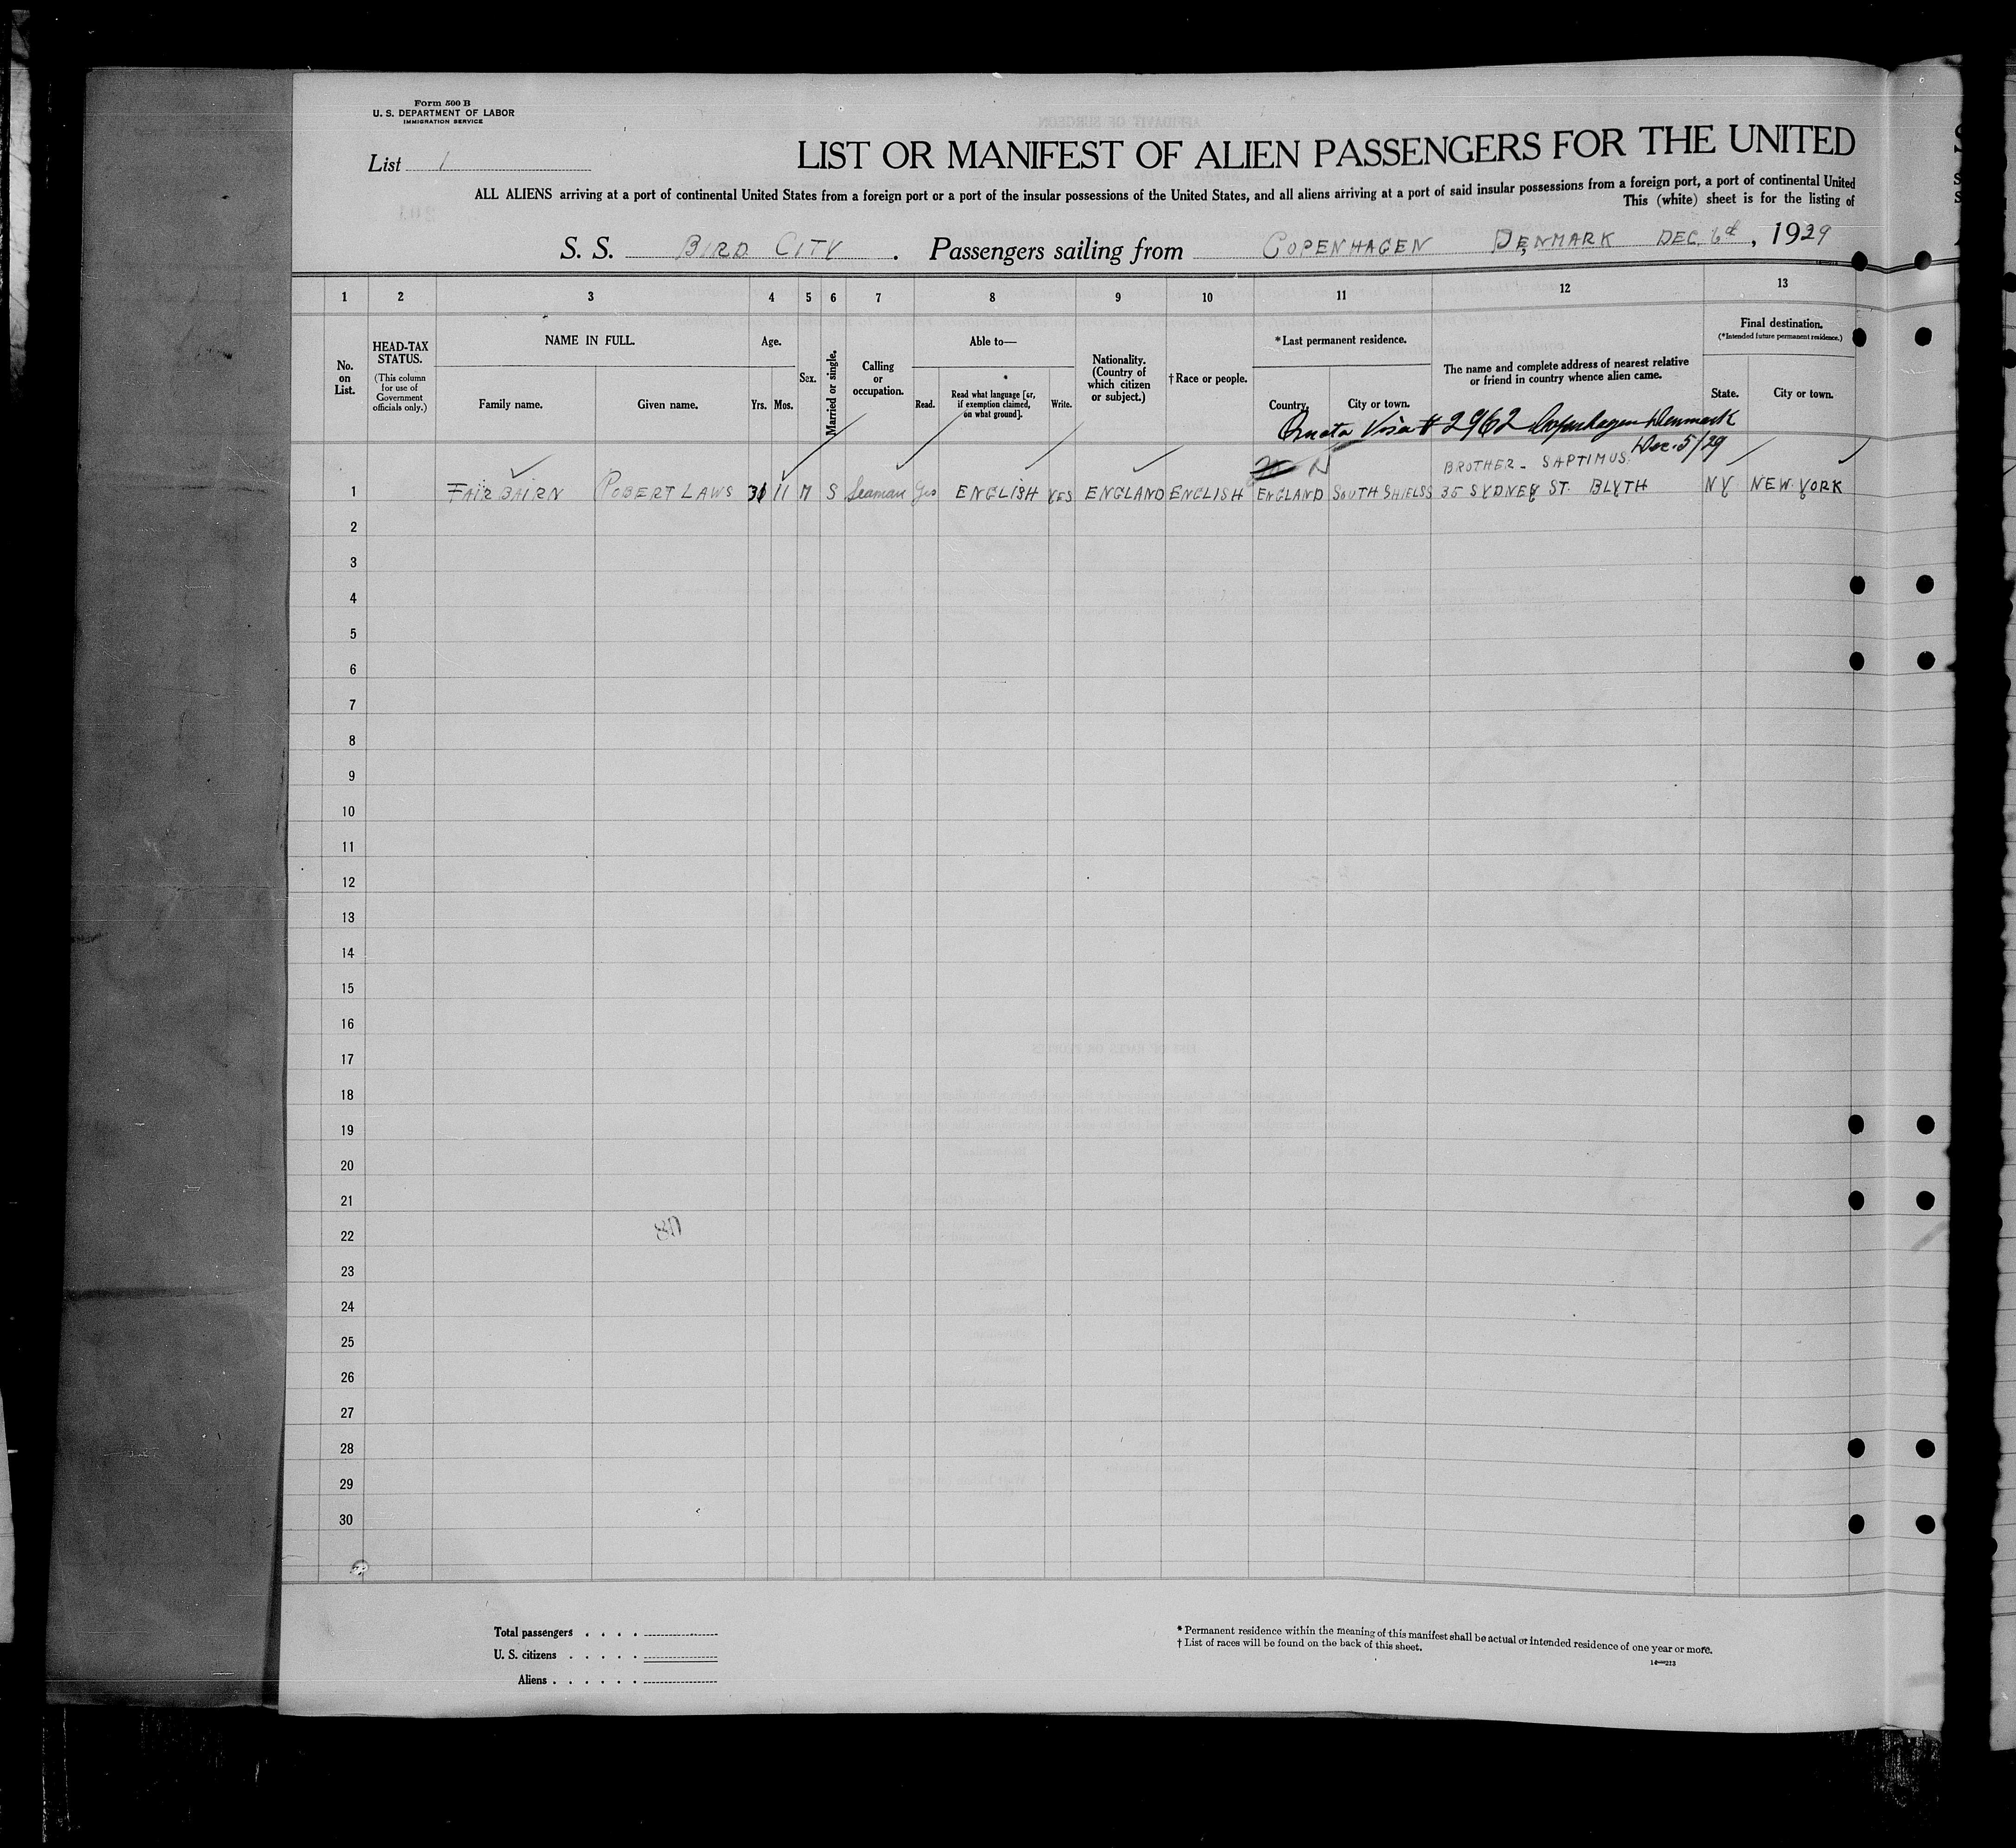 Form 500 B
U. S. DEPARTMENT OF LABOR
IMMIGRATION SERVICE
List 1
LIST OR MANIFEST OF ALIEN PASSENGERS FOR THE UNITED
ALL ALIENS arriving at a port of continental United States from a foreign port or a port of the insular possessions of the United States, and all aliens arriving at a port of said insular possessions from a foreign port, a port of continental United
This (white) sheet is for the listing of
S. S. BIRD CITY . Passengers sailing from COPENHAGEN DENMARK DEC. 6th, 1929
1 2 3 4 5 6 7 8 9 10 11 12 13
No. on List.
HEAD-TAX STATUS.
(This column for use of Government officials only.)
NAME IN FULL.
Family name. Given name.
Age.
Yrs. Mos.
Sex.
Married or single.
Calling or occupation.
Able to—
Read. Read what language [or, if exemption claimed, on what ground]. Write.
Nationality. (Country of which citizen or subject.)
† Race or people.
* Last permanent residence.
Country. City or town.
The name and complete address of nearest relative or friend in country whence alien came.
Final destination.
(* Intended future permanent residence.)
State. City or town.
Quota Visa # 2962 Copenhagen Denmark
Dec. 5/29
N
BROTHER - SAPTIMUS
1 FAIRBAIRN ROBERT LAWS 31 11 M S Seaman Yes ENGLISH YES ENGLAND ENGLISH ENGLAND SOUTH SHIELSS 35 SYDNEY ST. BLYTH NY NEW YORK
2
3
4
5
6
7
8
9
10
11
12
13
14
15
16
17
18
19
20
21
22
23
24
25
26
27
28
29
30
Total passengers . . . .
U. S. citizens . . . . .
Aliens . . . . . .
* Permanent residence within the meaning of this manifest shall be actual or intended residence of one year or more.
† List of races will be found on the back of this sheet.
14—213